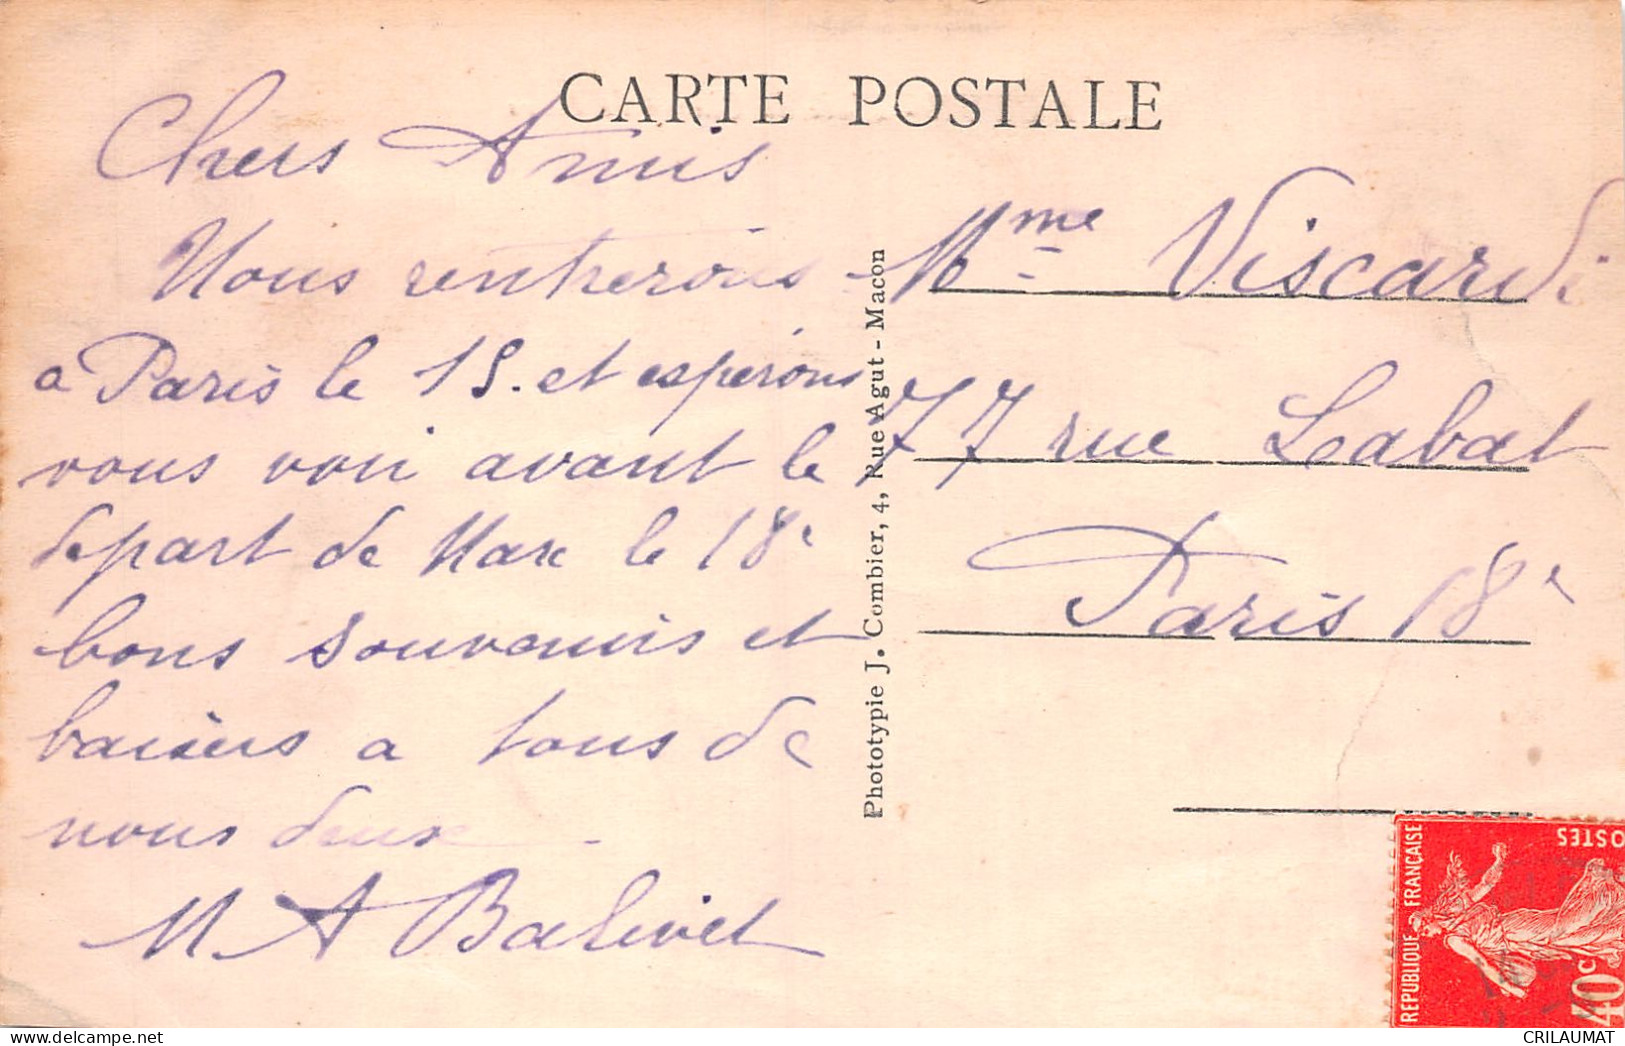 CARTE POSTALE
Chers Amis
Nous rentrerons
a Paris le 15. et esperons
vous voir avant le
depart de Marc le 18e
bons souvenirs et
baisers a tous de
nous deux
M A Balivet
Phototypie J. Combier, 4, Rue Agut - Macon
Mme Viscardi
77 rue Labat
Paris 18e
REPUBLIQUE FRANÇAISE
POSTES
40c
CRILAUMAT